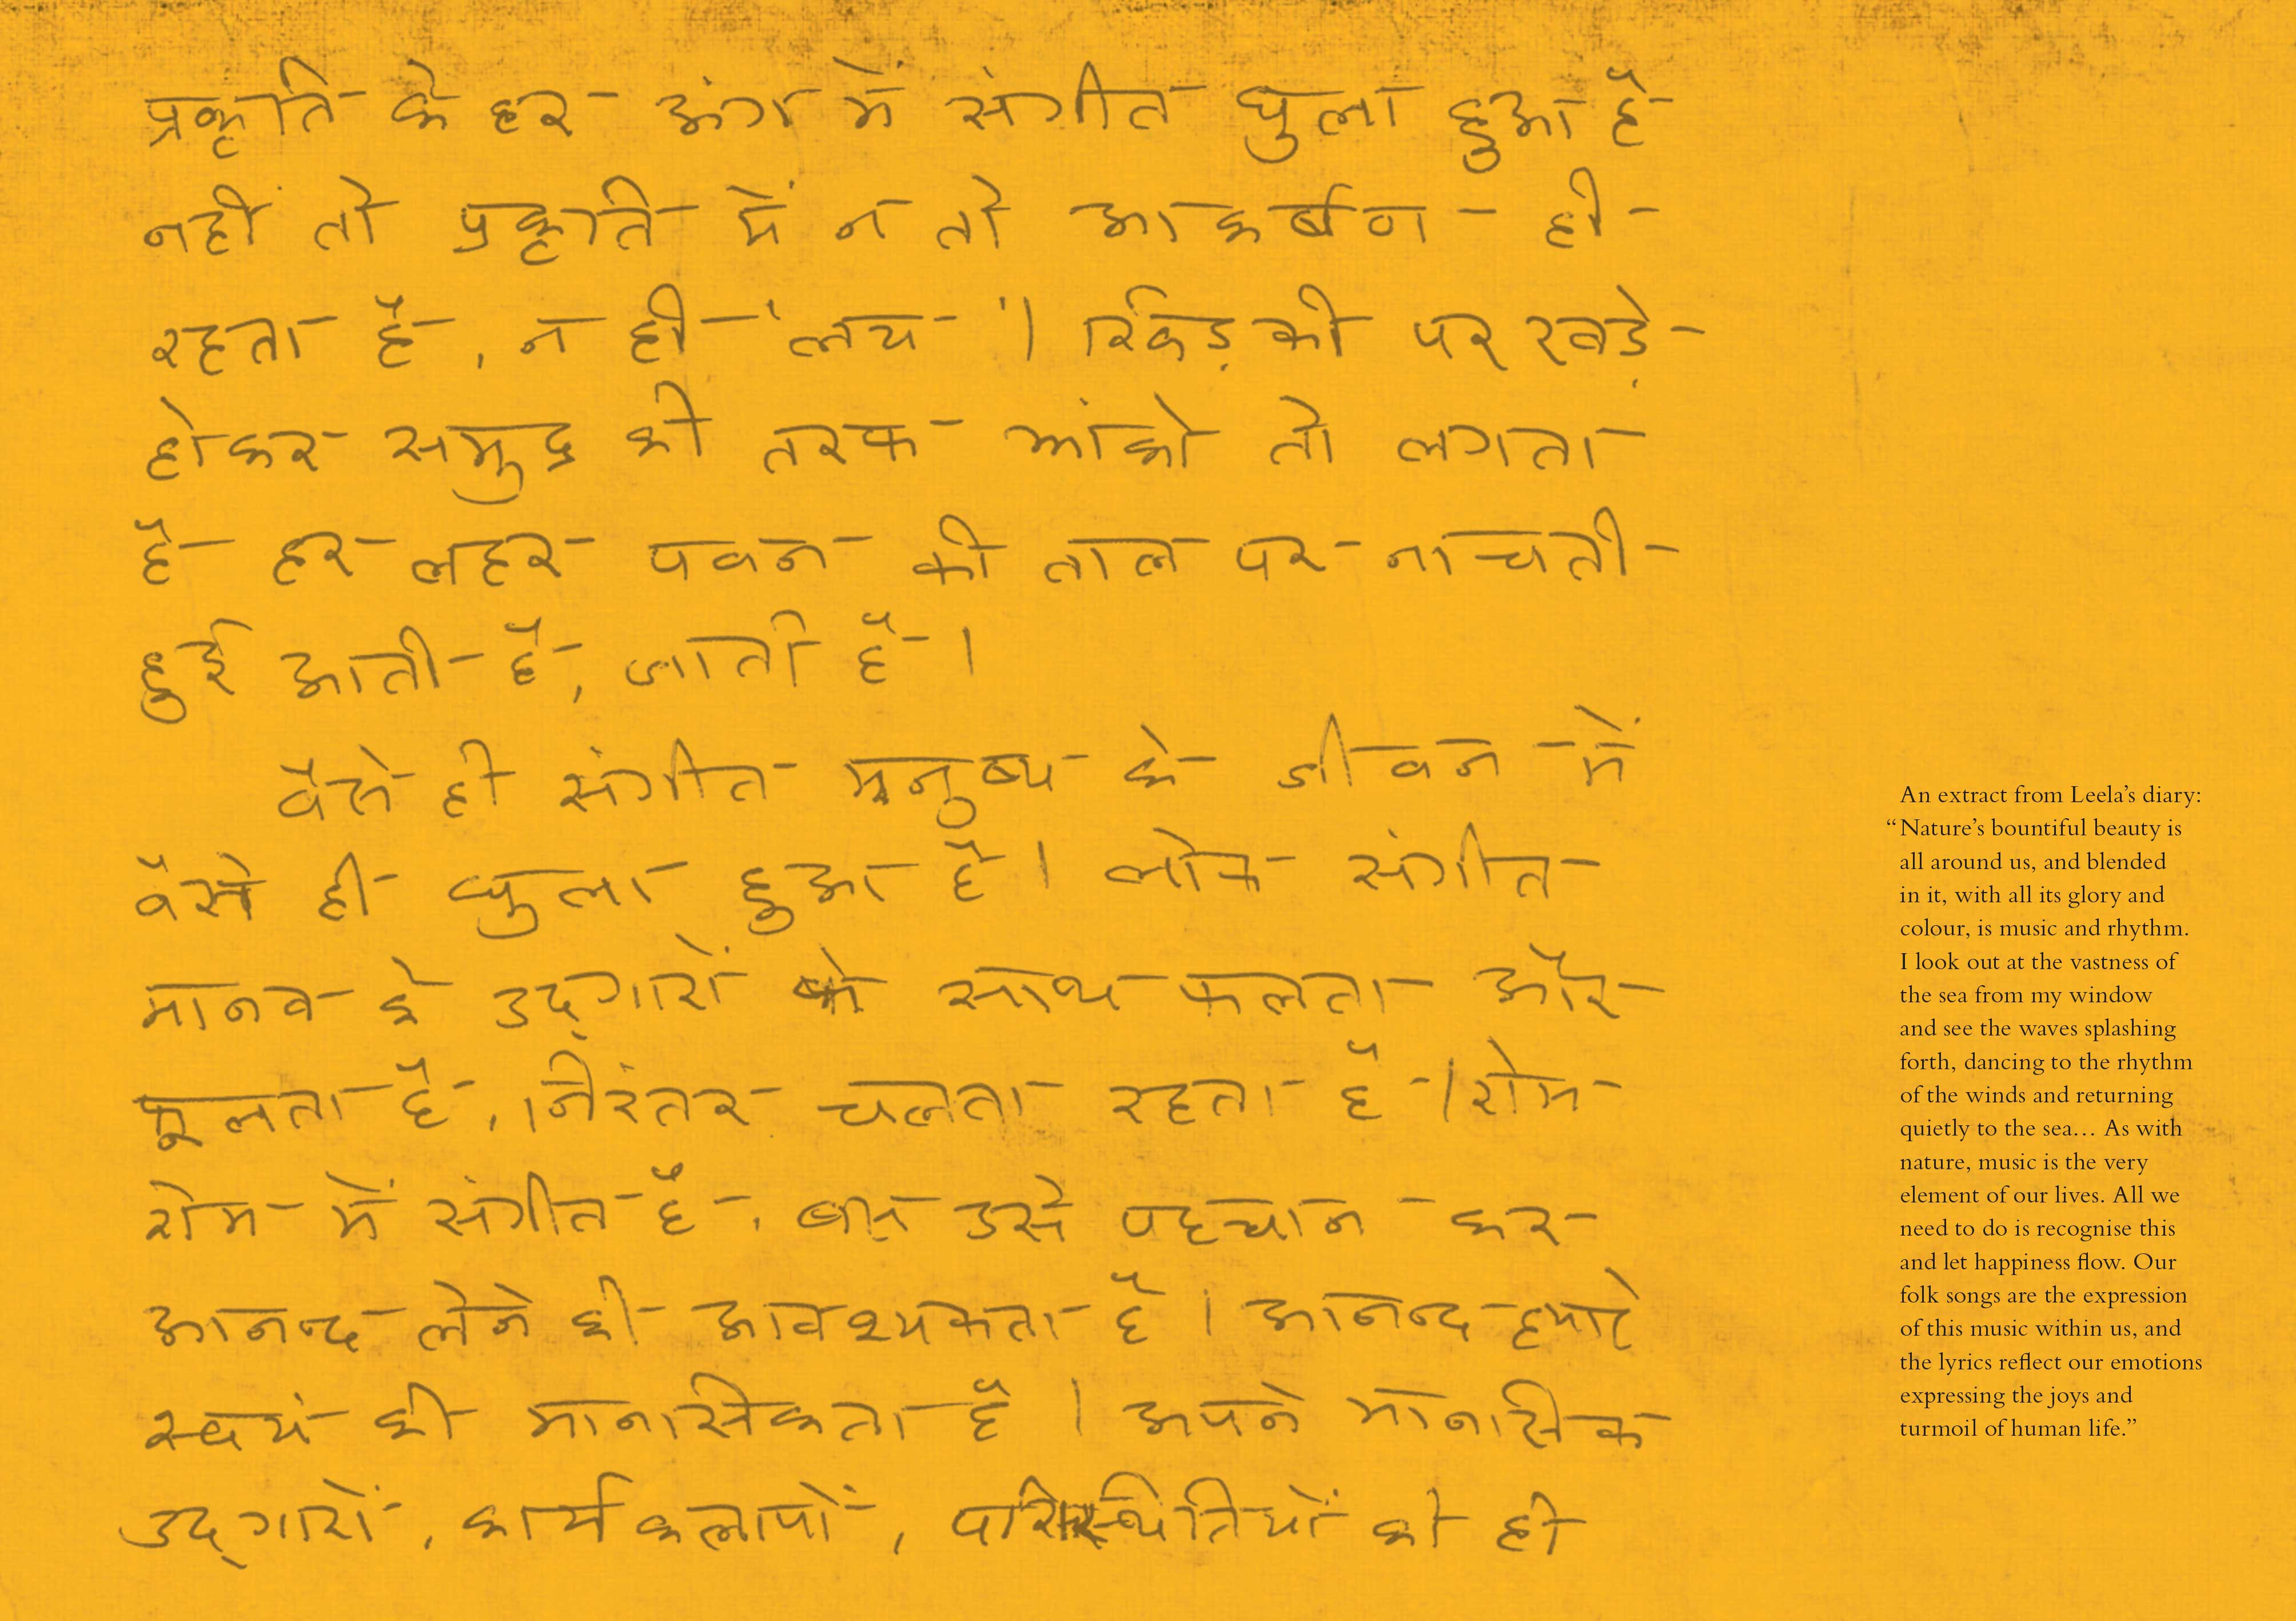 प्रकृति के हर अंग में संगीत घुला हुआ है
नहीं तो प्रकृति में न तो आकर्षण ही
रहता है, न ही 'लय'। खिड़की पर खड़े
होकर समुद्र की तरफ झांको तो लगता
है हर लहर पवन की ताल पर नाचती
हुई आती है, जाती है।
वैसे ही संगीत मनुष्य के जीवन में
वैसे ही घुला हुआ है। लोक संगीत
मानव के उद्‌गारों के साथ फलता और
फूलता है, निरंतर चलता रहता है। रोम
रोम में संगीत है, बस उसे पहचान कर
आनन्द लेने की आवश्यकता है। आनन्द हमारे
स्वयं की मानसिकता है। अपने मानसिक
उद्‌गारों, कार्यकलापों, परिस्थितियों को ही
An extract from Leela's diary:
“Nature's bountiful beauty is
all around us, and blended
in it, with all its glory and
colour, is music and rhythm.
I look out at the vastness of
the sea from my window
and see the waves splashing
forth, dancing to the rhythm
of the winds and returning
quietly to the sea... As with
nature, music is the very
element of our lives. All we
need to do is recognise this
and let happiness flow. Our
folk songs are the expression
of this music within us, and
the lyrics reflect our emotions
expressing the joys and
turmoil of human life.”